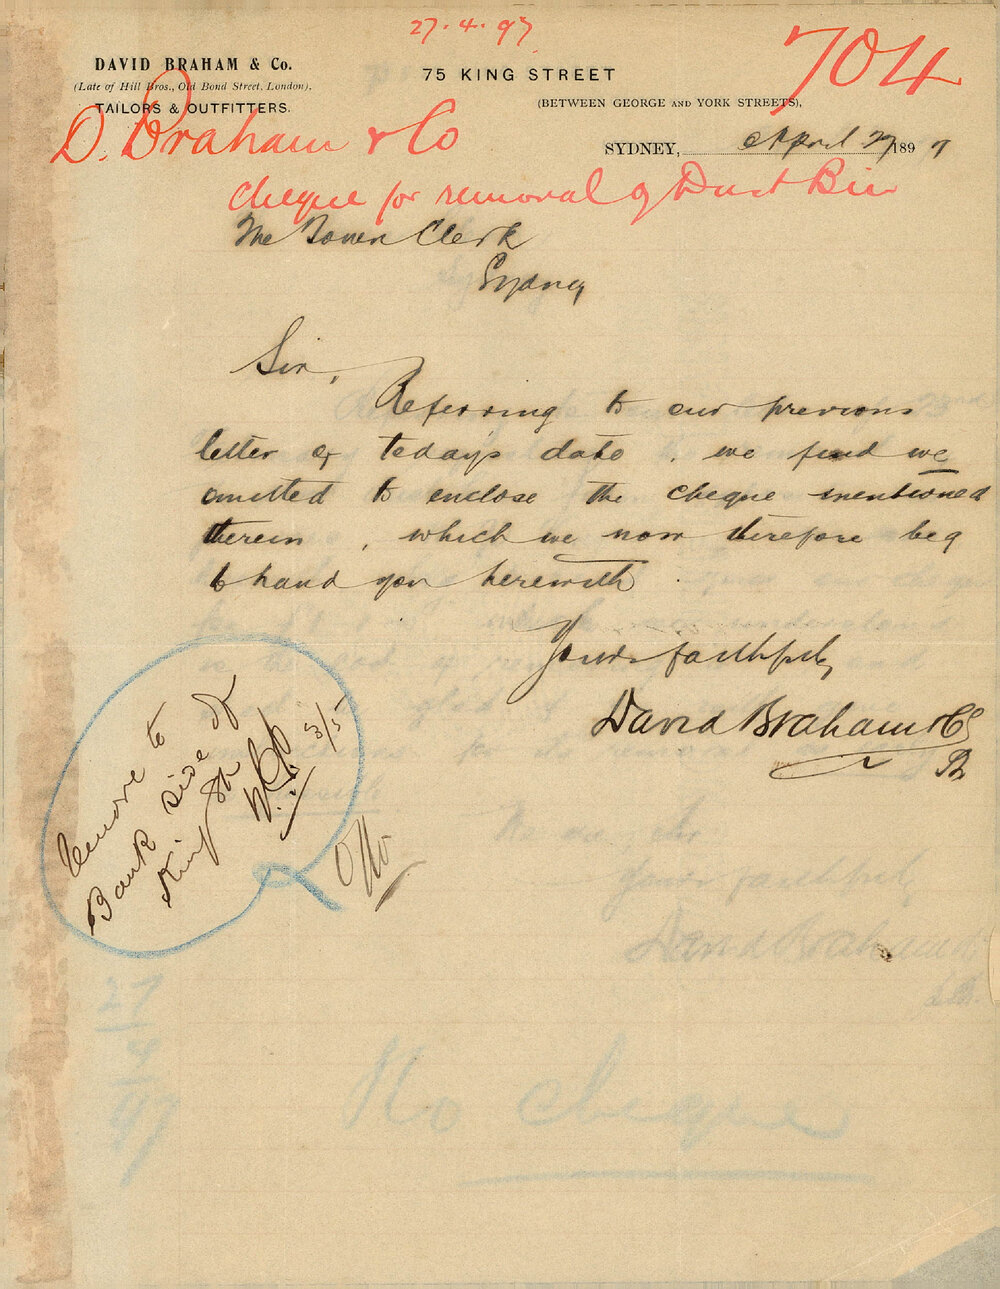 27.4.97
704
DAVID BRAHAM & Co.
(Late of Hill Bros., Old Bond Street, London).
TAILORS & OUTFITTERS.
75 KING STREET
(BETWEEN GEORGE AND YORK STREETS),
SYDNEY, April 27 1897
D. Braham & Co
cheque for removal of Dust Bin
The Town Clerk
Sydney
Sir,
Referring to our previous
letter of today's date, we find we
omitted to enclose the cheque mentioned
therein, which we now therefore beg
to hand you herewith.
Yours faithfully
David Braham & Co
Remove to
Bank side of
King St
3/5
27
4
97
No cheque
Yours faithfully,
David Braham